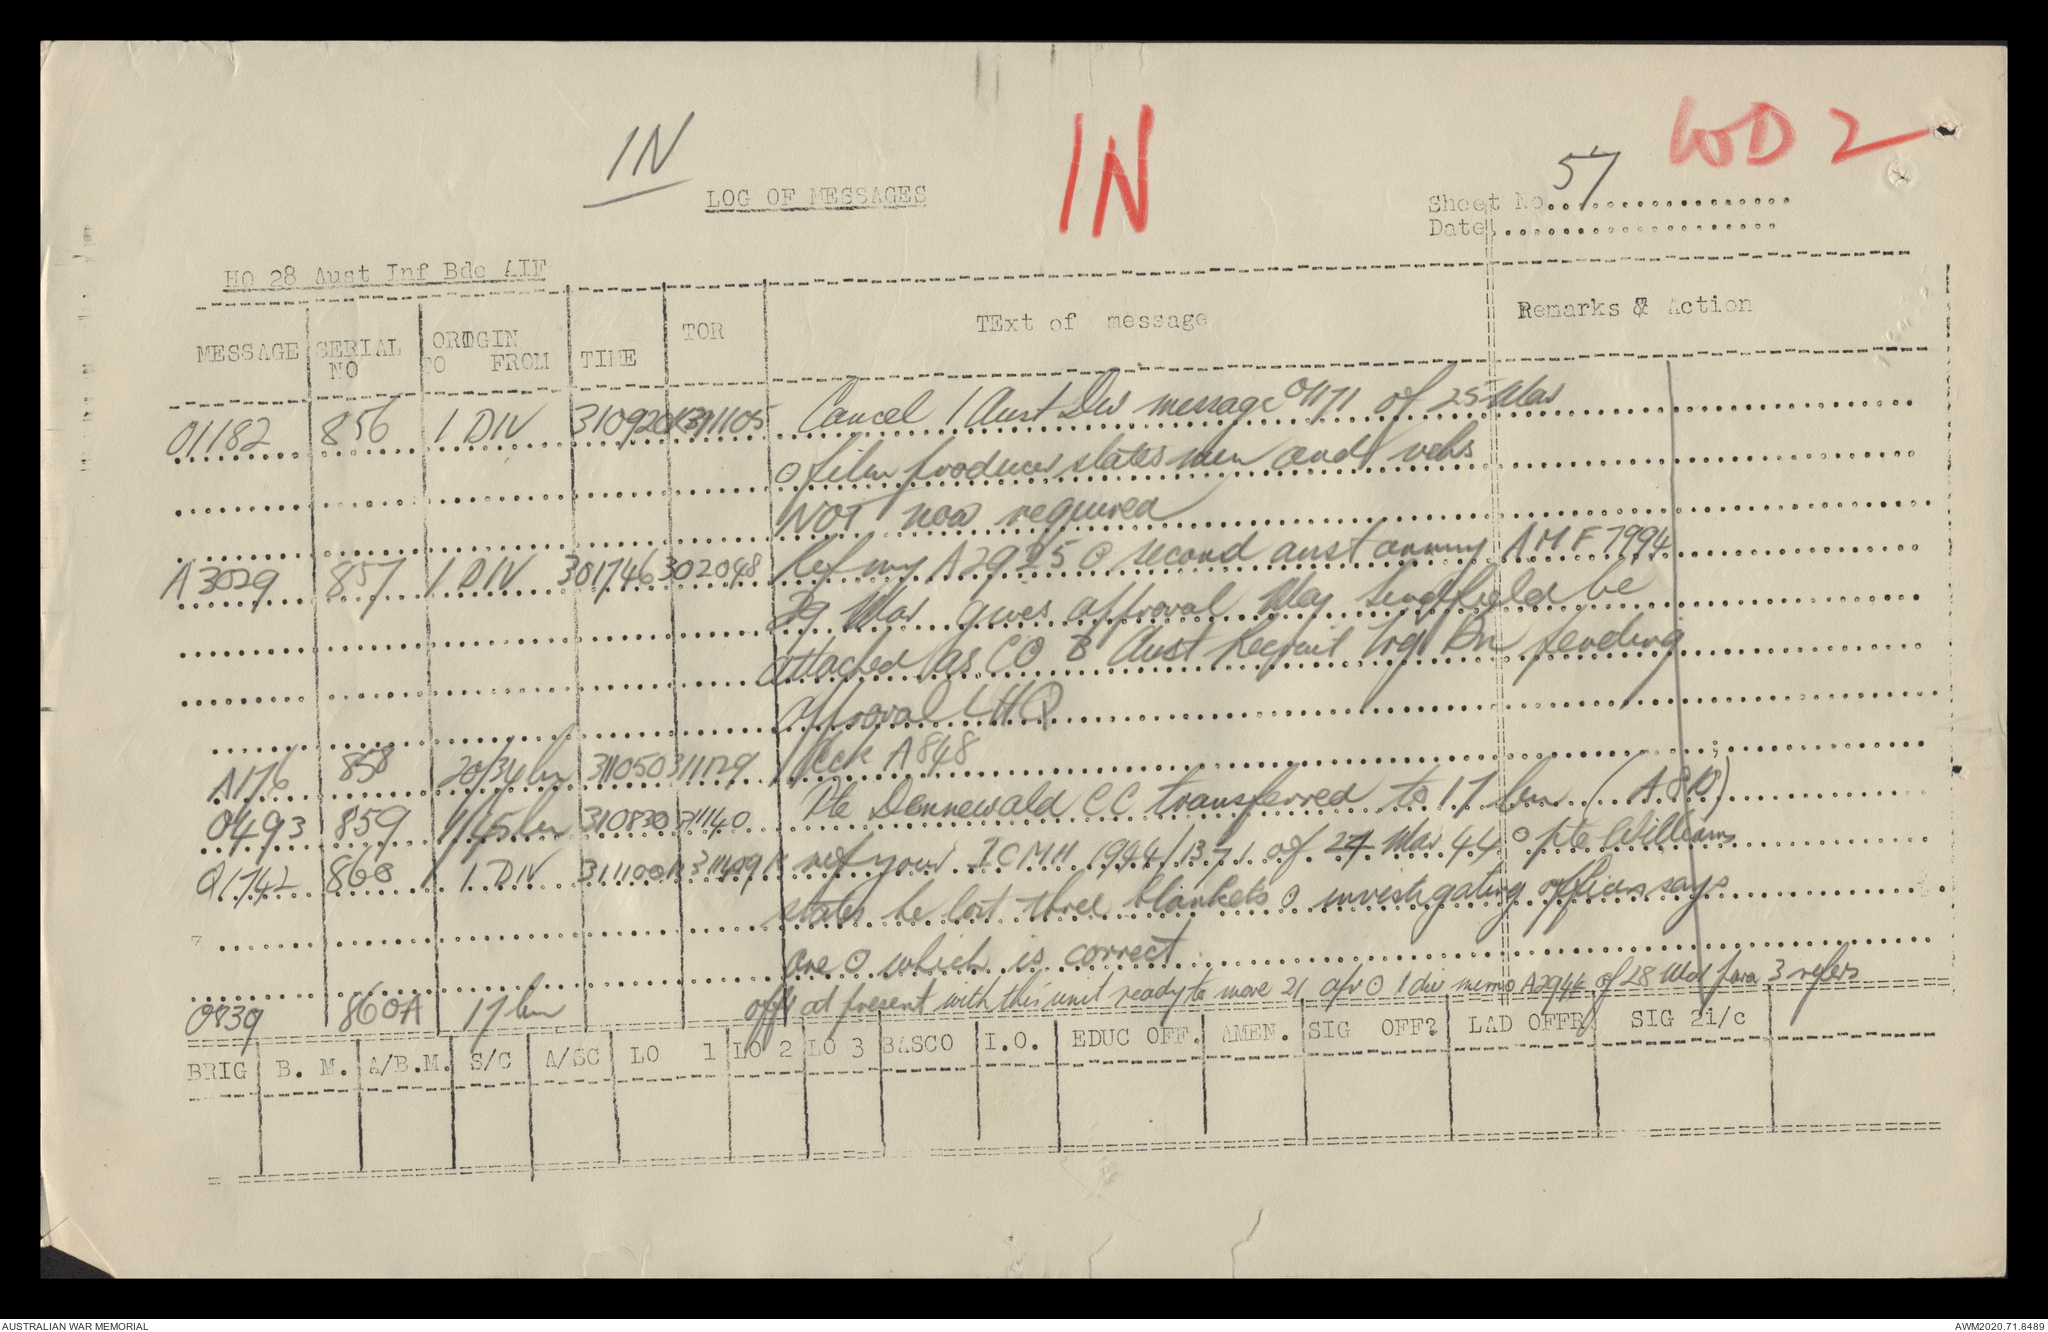 IN
IN
WD 2
LOG OF MESSAGES
Sheet No. 57
Date
HQ 28 Aust Inf Bde AIF
MESSAGE SERIAL NO ORIGIN TO FROM TIME TOR TExt of message Remarks & Action
01182 856 1 DIV 310920K 311105 Cancel 1 Aust Div message of 25 Mar
o film producer states men and vehs
NOT now required
A3029 857 1 DIV 301746 302048 Ref my A2925 o second aust army AMF 7994
29 Mar gives approval Maj Lindfield be
attached as CO 3 Aust Recruit Trg Bn pending
approval LHQ
A176 858 20/34 bn 311050 311129 Ack A848
0493 859 11/45 bn 310830 311140 Pte Dennewald CC transferred to 17 bn (A810)
Q1742 860 1 DIV 311100K 311409K ref your ICMH 1944/1371 of 27 Mar 44 o pte Williams
states he lost three blankets o investigating officer says
one o which is correct
0939 860A 17 bn offr at present with this unit ready to move 21 apr o 1 div memo A2944 of 28 Mar para 3 refers
BRIG B. M. A/B.M. S/C A/SC LO 1 LO 2 LO 3 BASCO I.O. EDUC OFF. AMEN. SIG OFF? LAD OFFR SIG 2i/c
AUSTRALIAN WAR MEMORIAL
AWM2020.71.8489